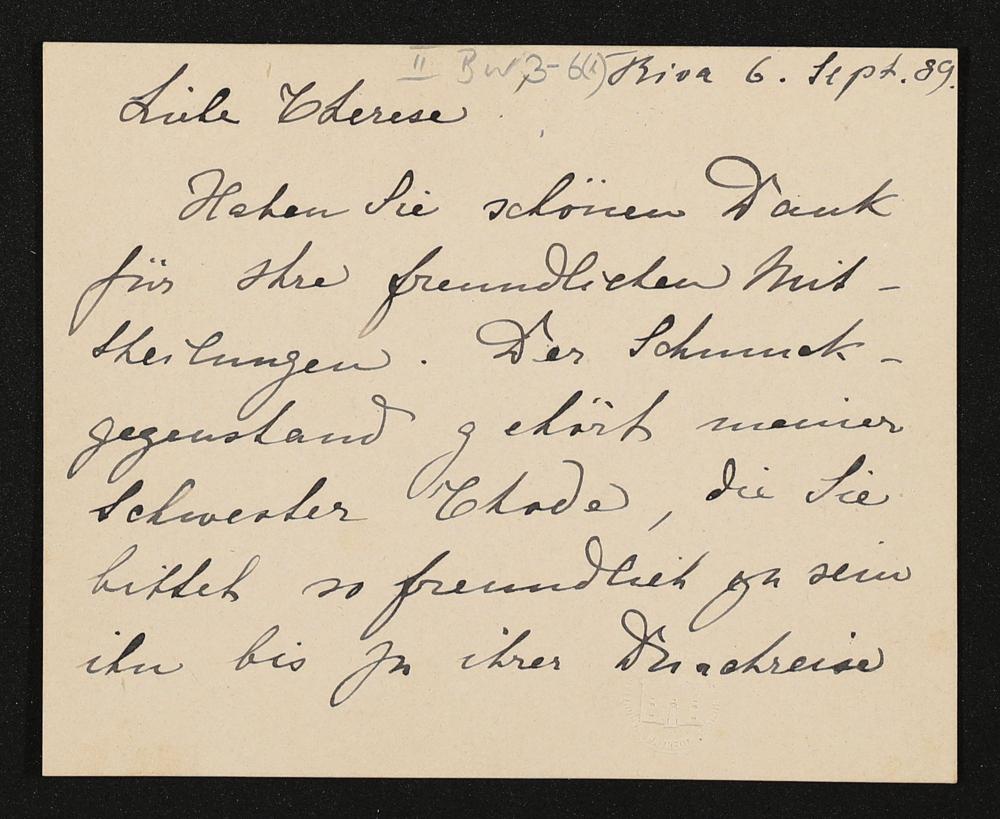 II BW 3-6(1) Riva 6. Sept. 89.
Liebe Therese
Haben Sie schönen Dank
für Ihre freundlichen Mit-
theilungen. Der Schmuck-
gegenstand gehört meiner
Schwester Thode, die Sie
bittet so freundlich zu sein
ihn bis zu ihrer Durchreise